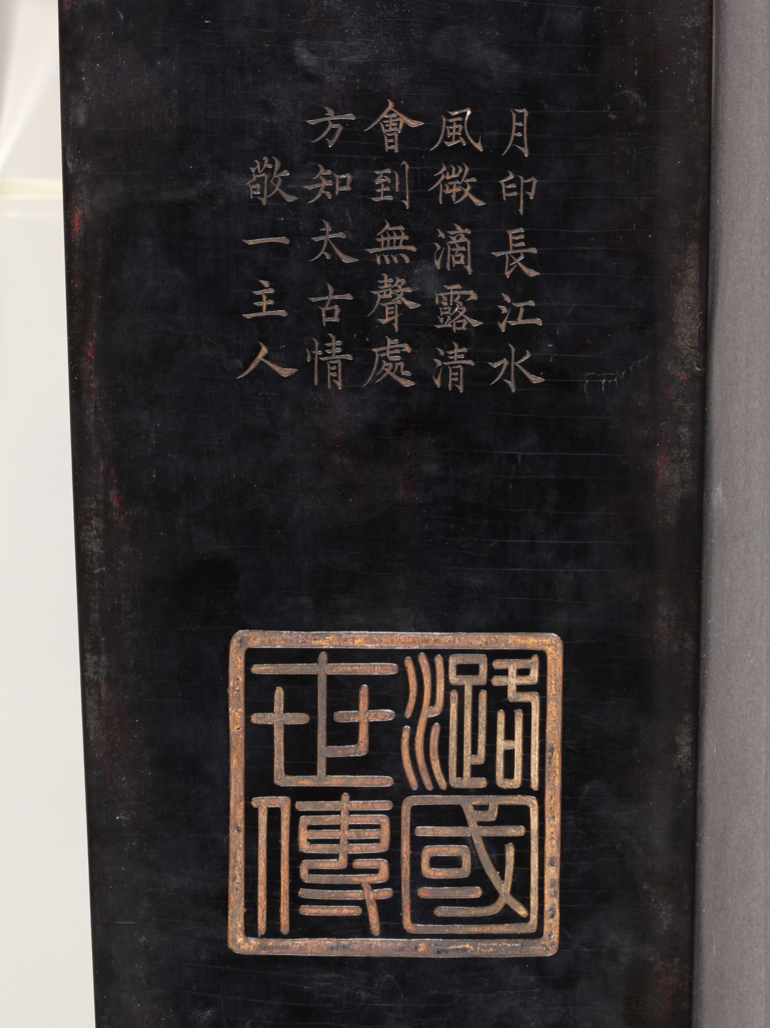 月印長江水
風微滴露清
會到無聲處
方知太古情
敬一主人
潞國
世傳